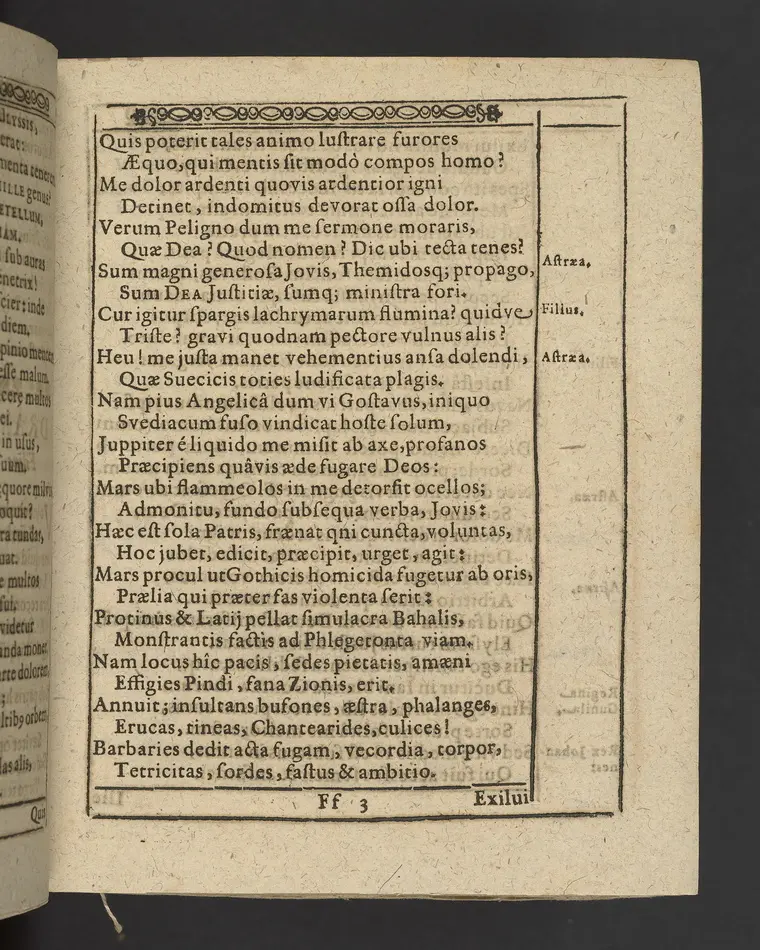 Quis poterit tales animo luſtrare furores
Æquo, qui mentis ſit modò compos homo?
Me dolor ardenti quovis ardentior igni
Detinet, indomitus devorat oſſa dolor.
Verum Peligno dum me ſermone moraris,
Quæ Dea? Quod nomen? Dic ubi tecta tenes?
Aſtræa.
Sum magni generoſa Jovis, Themidosq; propago,
Sum DEA Juſtitiæ, ſumq; miniſtra fori.
Filius.
Cur igitur ſpargis lachrymarum flumina? quidve
Triſte? gravi quodnam pectore vulnus alis?
Aſtræa.
Heu! me juſta manet vehementius anſa dolendi,
Quæ Suecicis toties ludificata plagis.
Nam pius Angelicâ dum vi Goſtavus, iniquo
Svediacum fuſo vindicat hoſte ſolum,
Juppiter é liquido me miſit ab axe, profanos
Præcipiens quâvis æde fugare Deos:
Mars ubi flammeolos in me detorſit ocellos;
Admonitu, fundo ſubſequa verba, Jovis:
Hæc eſt ſola Patris, frænat qni cuncta, voluntas,
Hoc jubet, edicit, præcipit, urget, agit:
Mars procul ut Gothicis homicida fugetur ab oris,
Prælia qui præter fas violenta ſerit:
Protinus & Latij pellat ſimulacra Bahalis,
Monſtrantis factis ad Phlegetonta viam.
Nam locus hîc pacis, ſedes pietatis, amæni
Effigies Pindi, fana Zionis, erit.
Annuit; inſultans bufones, æſtra, phalanges,
Erucas, tineas, Chantearides, culices!
Barbaries dedit acta fugam, vecordia, torpor,
Tetricitas, ſordes, faſtus & ambitio.
Ff 3
Exilui